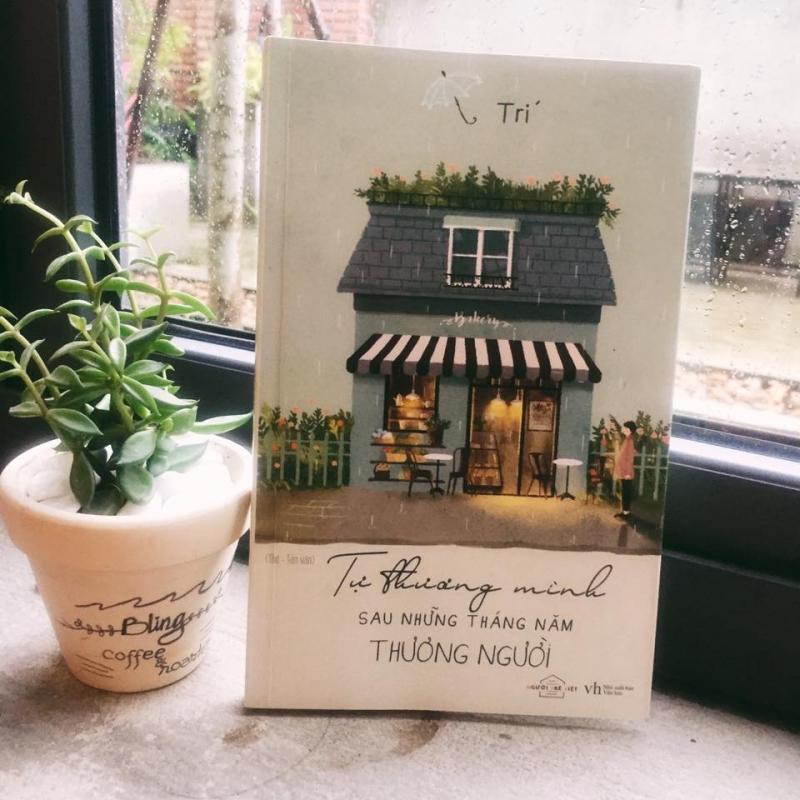 Trí
Bakery
(Thơ - Tản văn)
Tự thương mình
SAU NHỮNG THÁNG NĂM
THƯƠNG NGƯỜI
NGƯỜI TRẺ VIỆT
vh Nhà xuất bản
Văn học
Bling
coffee &